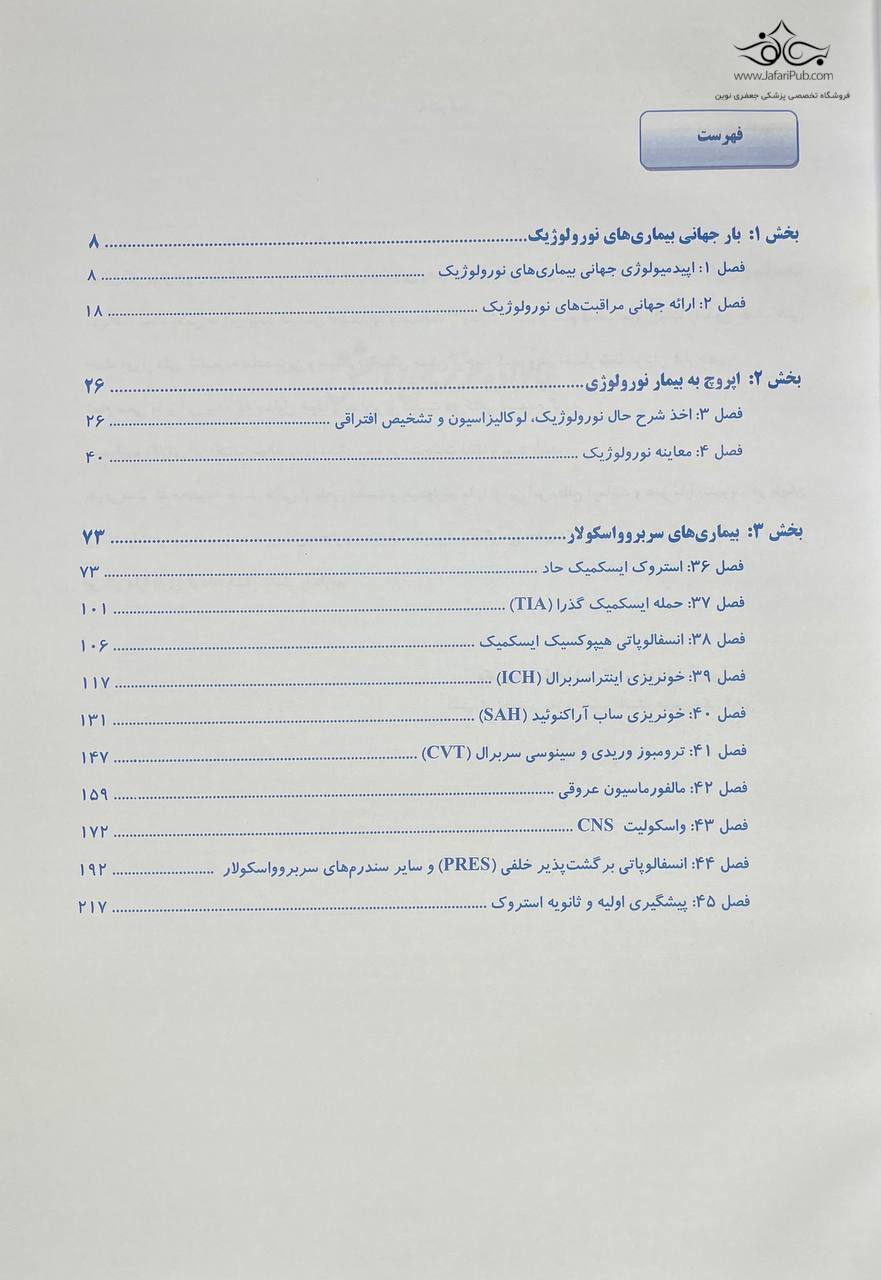 www.JafariPub.com
فروشگاه تخصصی پزشکی جعفری نوین
فهرست
بخش ۱: بار جهانی بیماری‌های نورولوژیک ........ ۸
فصل ۱: اپیدمیولوژی جهانی بیماری‌های نورولوژیک ........ ۸
فصل ۲: ارائه جهانی مراقبت‌های نورولوژیک ........ ۱۸
بخش ۲: اپروچ به بیمار نورولوژی ........ ۲۶
فصل ۳: اخذ شرح حال نورولوژیک، لوکالیزاسیون و تشخیص افتراقی ........ ۲۶
فصل ۴: معاینه نورولوژیک ........ ۴۰
بخش ۳: بیماری‌های سربروواسکولار ........ ۷۳
فصل ۳۶: استروک ایسکمیک حاد ........ ۷۳
فصل ۳۷: حمله ایسکمیک گذرا (TIA) ........ ۱۰۱
فصل ۳۸: انسفالوپاتی هیپوکسیک ایسکمیک ........ ۱۰۶
فصل ۳۹: خونریزی اینتراسربرال (ICH) ........ ۱۱۷
فصل ۴۰: خونریزی ساب آراکنوئید (SAH) ........ ۱۳۱
فصل ۴۱: ترومبوز وریدی و سینوسی سربرال (CVT) ........ ۱۴۷
فصل ۴۲: مالفورماسیون عروقی ........ ۱۵۹
فصل ۴۳: واسکولیت CNS ........ ۱۷۲
فصل ۴۴: انسفالوپاتی برگشت‌پذیر خلفی (PRES) و سایر سندرم‌های سربروواسکولار ........ ۱۹۲
فصل ۴۵: پیشگیری اولیه و ثانویه استروک ........ ۲۱۷